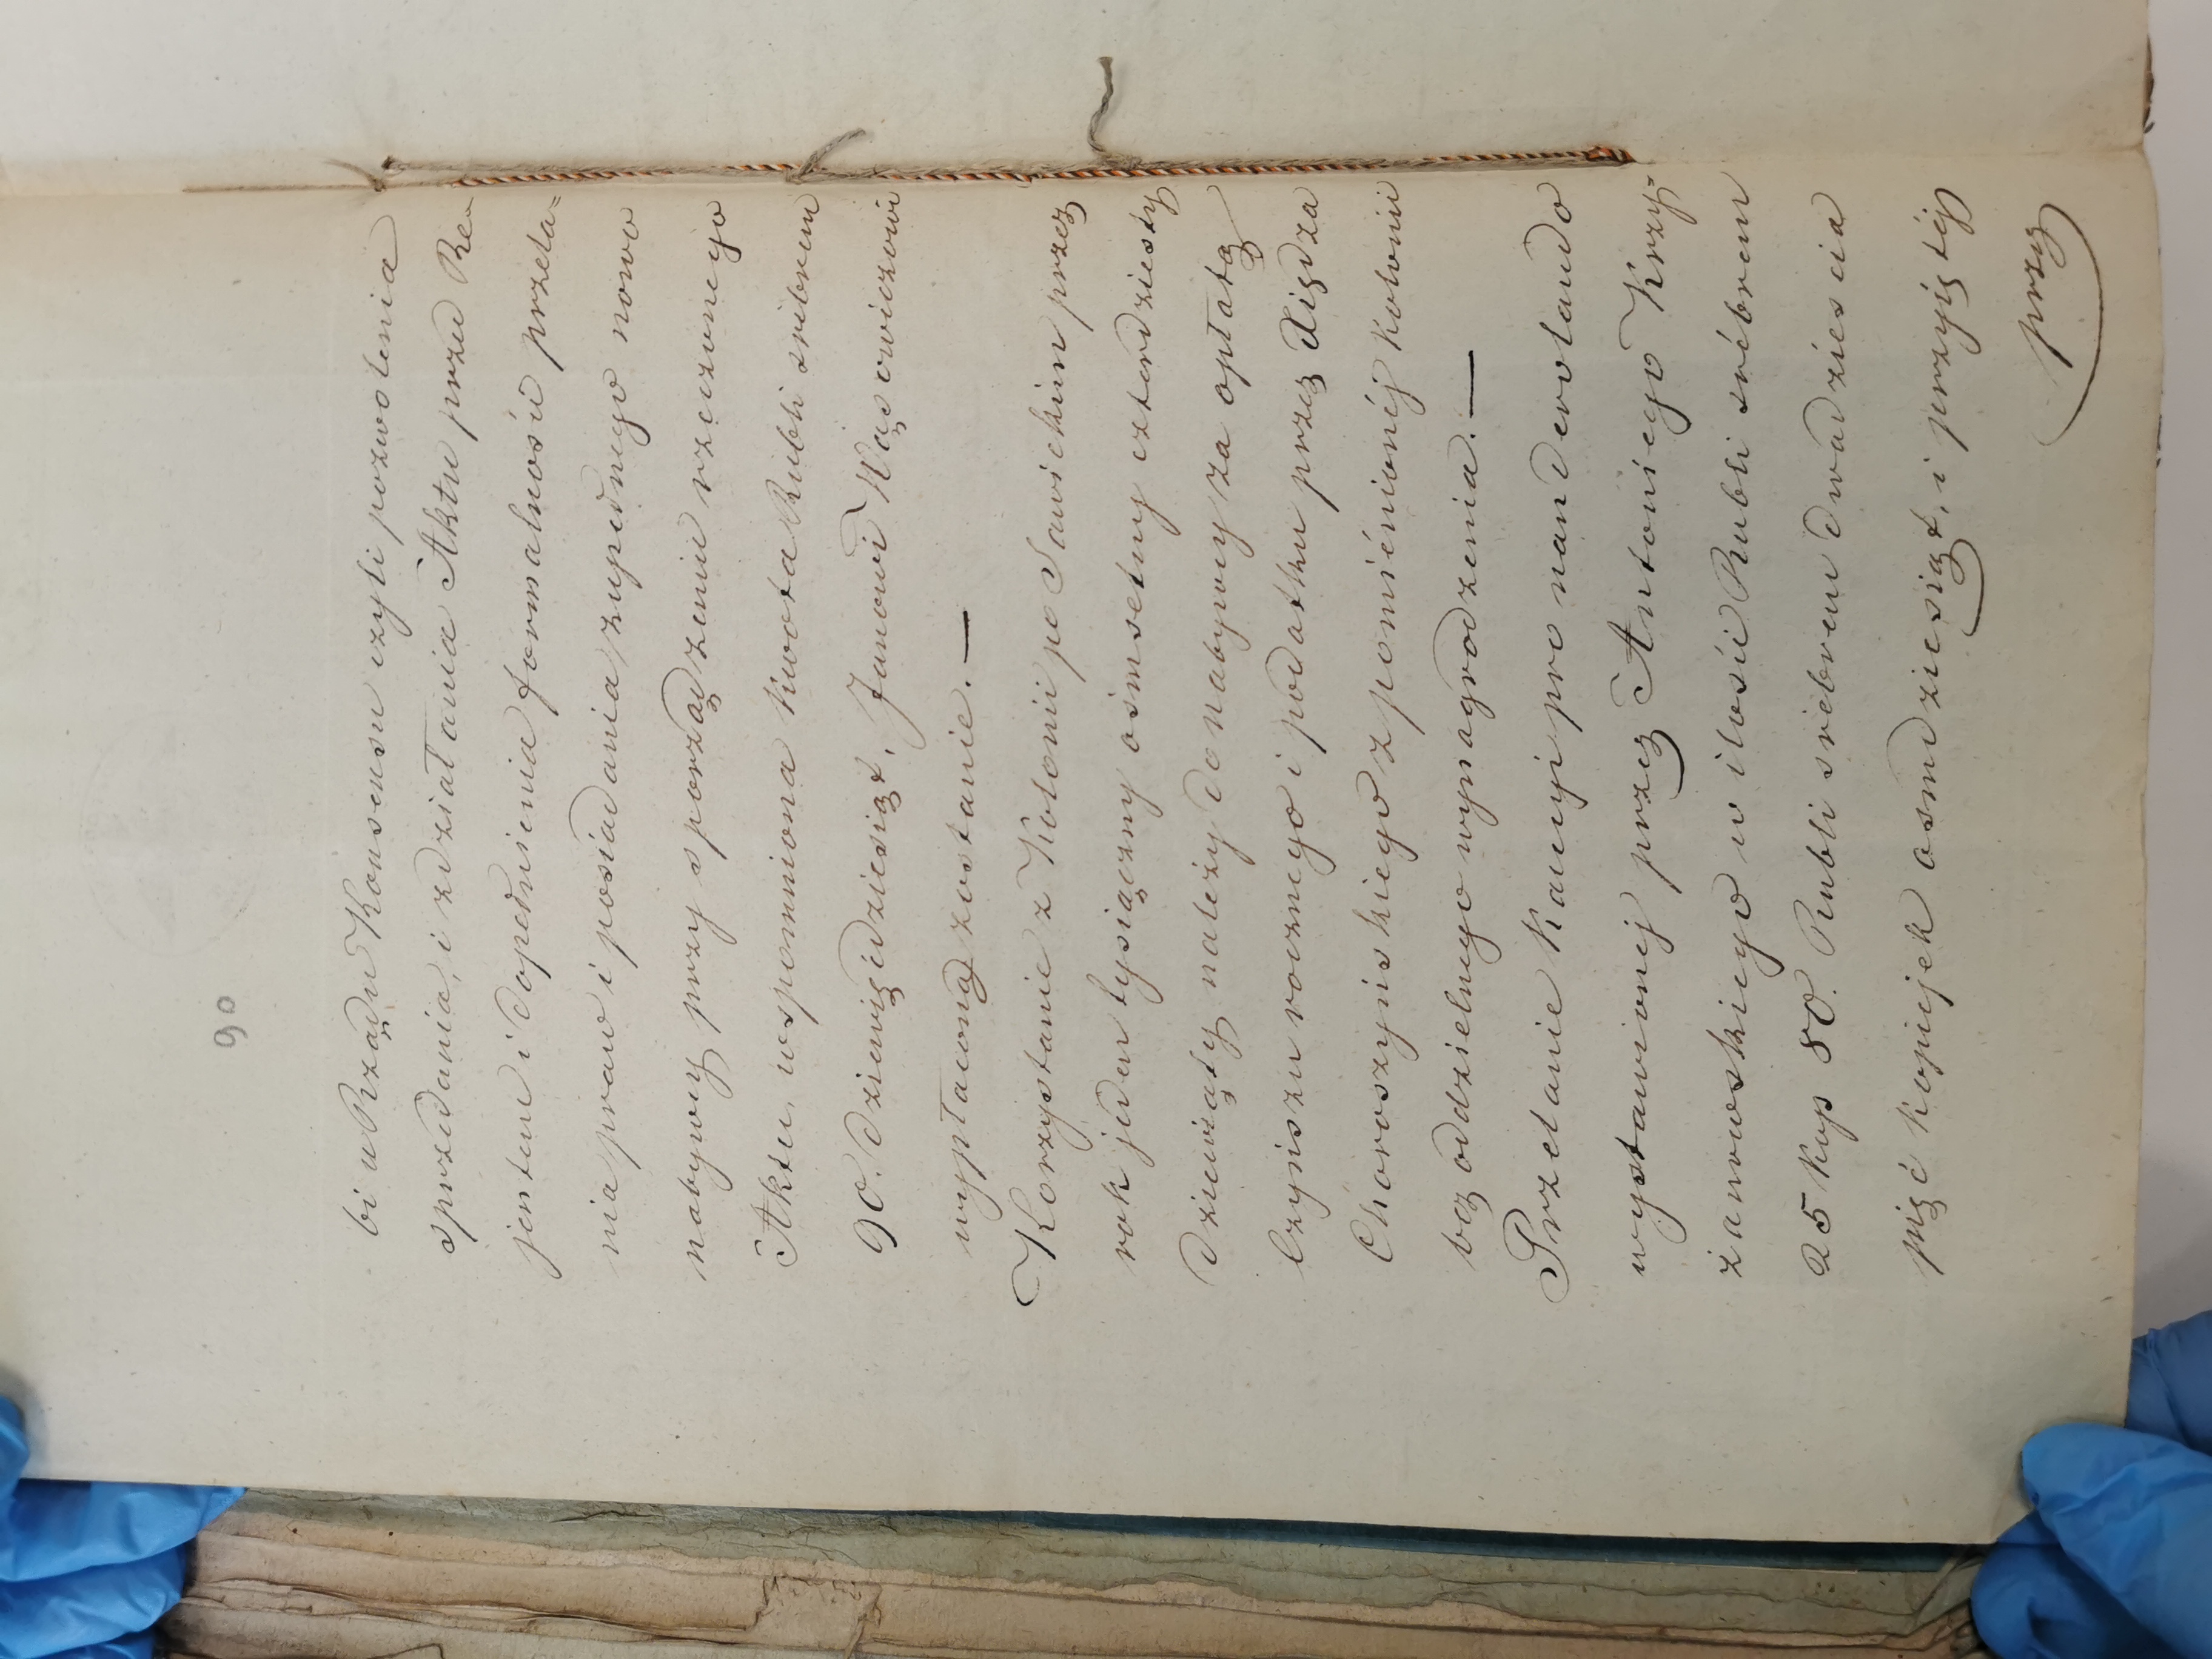 90
bi u Rządu Konsensu czyli pozwolenia
sprzedania, i zdziałania Aktu przed Re-
jentem i dopełnienia formalności przela=
nia praw i posiadania zupełnego nowo
nabywcy przy sporządzeniu rzeczonego
Aktu, wspomniona kwota Rubli srebrem
90. dziewięćdziesiąt, Janowi Wąsowiczowi
wypłaconą zostanie. —
Korzystanie z Kolonii po Sawickim przez
rok jeden tysiączny ośmsetny czterdziesty
dziewiąty należy do nabywcy za opłatą
Czynszu rocznego i podatku przez Xiędza
Choroszyńskiego z pomienionéj kolonii
bez oddzielnego wynagrodzenia. —
Przelanie Kaucyi pro nanderolando
wystawionej przez Antoniego Krzy=
żanowskiego w ilości Rubli srébrem
25 kop 80. Rubli srébrem dwadzieścia
pięć kopiejek ośmdziesiąt, i przyjętéj
przez